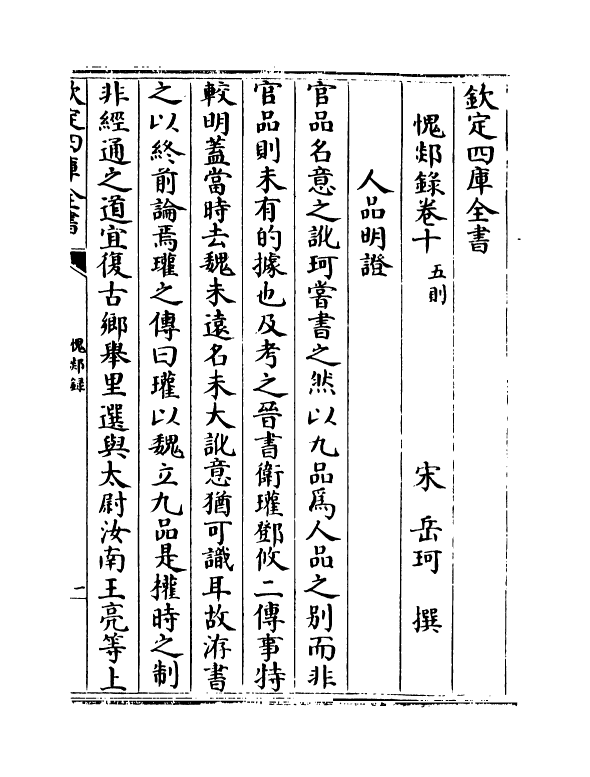 欽定四庫全書
愧郯錄卷十 五則
宋 岳珂 撰
人品明證
官品名意之訛珂嘗書之然以九品爲人品之别而非
官品則未有的據也及考之晉書衛瓘鄧攸二傳事特
較明蓋當時去魏未遠名未大訛意猶可識耳故洊書
之以終前論焉瓘之傳曰瓘以魏立九品是權時之制
非經通之道宜復古鄉舉里選與太尉汝南王亮等上
欽定四庫全書
愧郯録
一